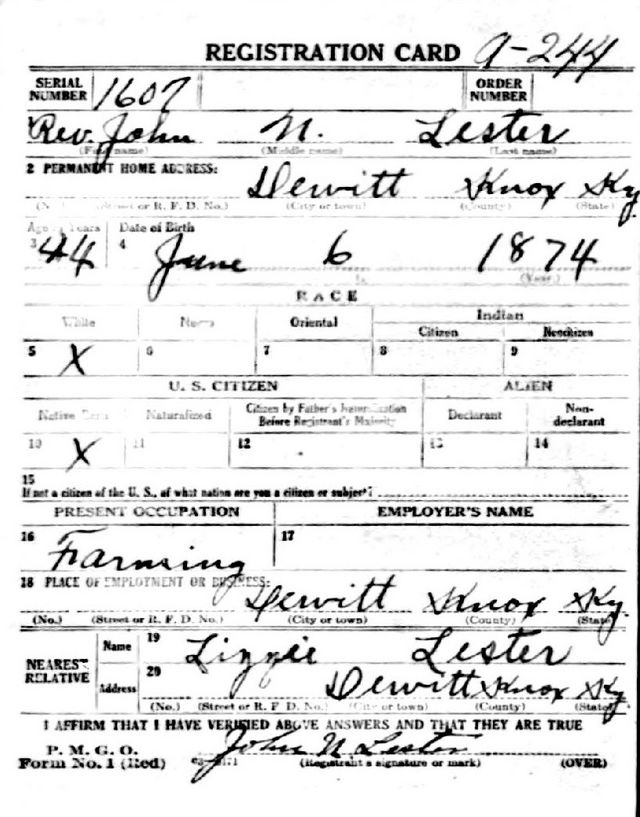 REGISTRATION CARD A-244
SERIAL NUMBER 1607 ORDER NUMBER
Rev. John N. Lester
(First name) (Middle name) (Last name)
2 PERMANENT HOME ADDRESS:
Dewitt Knox Ky.
(No.) (Street or R. F. D. No.) (City or town) (County) (State)
Age in Years Date of Birth
3 44 4 June 6 1874
(Year.)
RACE
White Negro Oriental Indian
Citizen Noncitizen
5 X 6 7 8 9
U. S. CITIZEN ALIEN
Native Born Naturalized Citizen by Father's Naturalization Before Registrant's Majority Declarant Non-declarant
10 X 11 12 13 14
15
If not a citizen of the U. S., of what nation are you a citizen or subject?
PRESENT OCCUPATION EMPLOYER'S NAME
16 Farming 17
18 PLACE OF EMPLOYMENT OR BUSINESS:
Dewitt Knox Ky.
(No.) (Street or R. F. D. No.) (City or town) (County) (State)
NEAREST RELATIVE Name 19 Lizzie Lester
Address 20 Dewitt Knox Ky.
(No.) (Street or R. F. D. No.) (City or town) (County) (State)
I AFFIRM THAT I HAVE VERIFIED ABOVE ANSWERS AND THAT THEY ARE TRUE
P. M. G. O.
Form No. 1 (Red) John N Lester
(Registrant's signature or mark) (OVER)